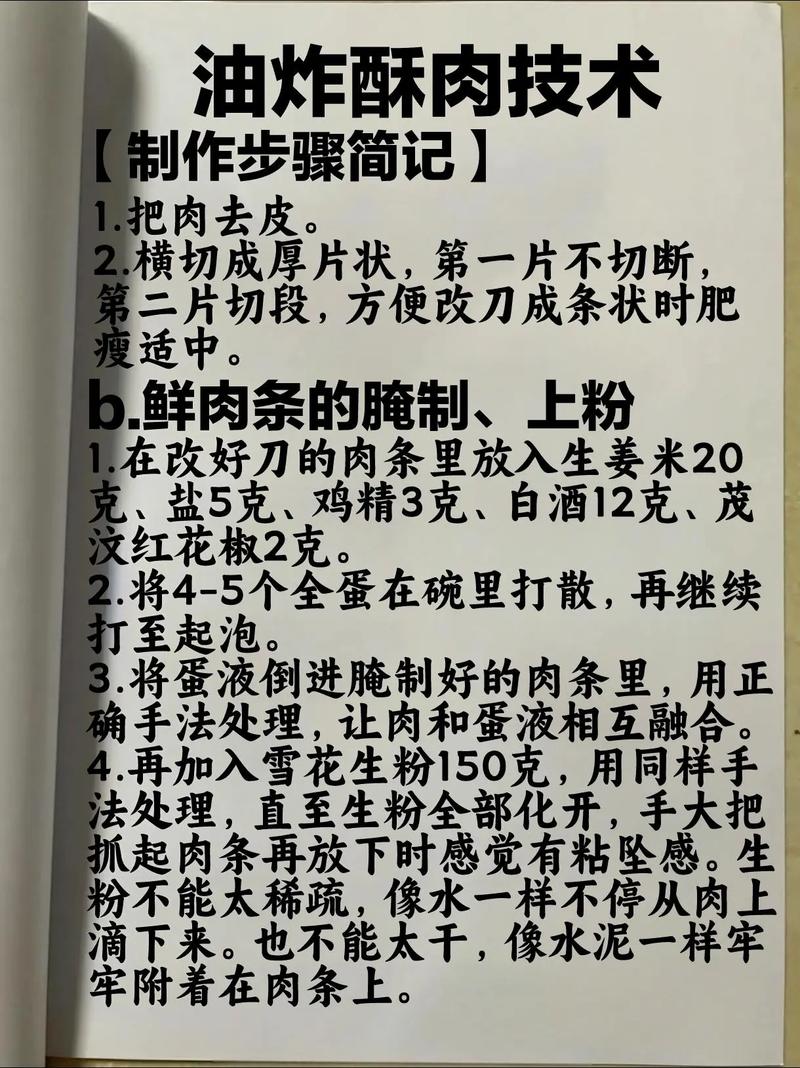 油炸酥肉技术
【制作步骤简记】
1.把肉去皮。
2.横切成厚片状，第一片不切断，
第二片切段，方便改刀成条状时肥
瘦适中。
b.鲜肉条的腌制、上粉
1.在改好刀的肉条里放入生姜米20
克、盐5克、鸡精3克、白酒12克、茂
汶红花椒2克。
2.将4-5个全蛋在碗里打散，再继续
打至起泡。
3.将蛋液倒进腌制好的肉条里，用正
确手法处理，让肉和蛋液相互融合。
4.再加入雪花生粉150克，用同样手
法处理，直至生粉全部化开，手大把
抓起肉条再放下时感觉有粘坠感。生
粉不能太稀疏，像水一样不停从肉上
滴下来。也不能太干，像水泥一样牢
牢附着在肉条上。